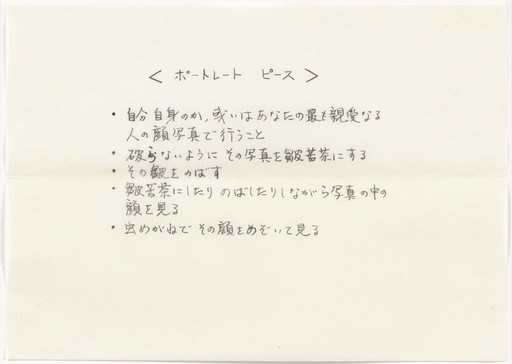 < ポートレート ピース >
・自分自身のか，或いはあなたの最も親愛なる
人の顔写真で行うこと
・破らないように その写真を皺苦茶にする
・その皺をのばす
・皺苦茶にしたり のばしたりしながら写真の中の
顔を見る
・虫めがねで その顔をのぞいて見る